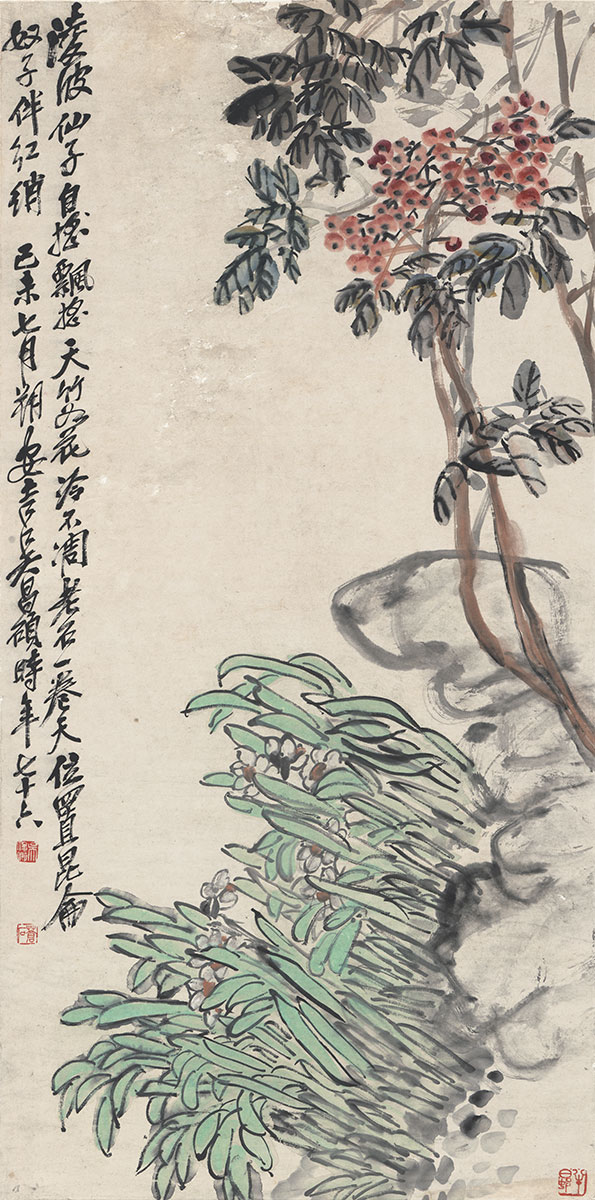 淩波仙子自搖飄搖天竹如花冷不凋老石一卷天位置昆侖
奴子伴紅綃 己未七月朔安吉吳昌碩時年七十六